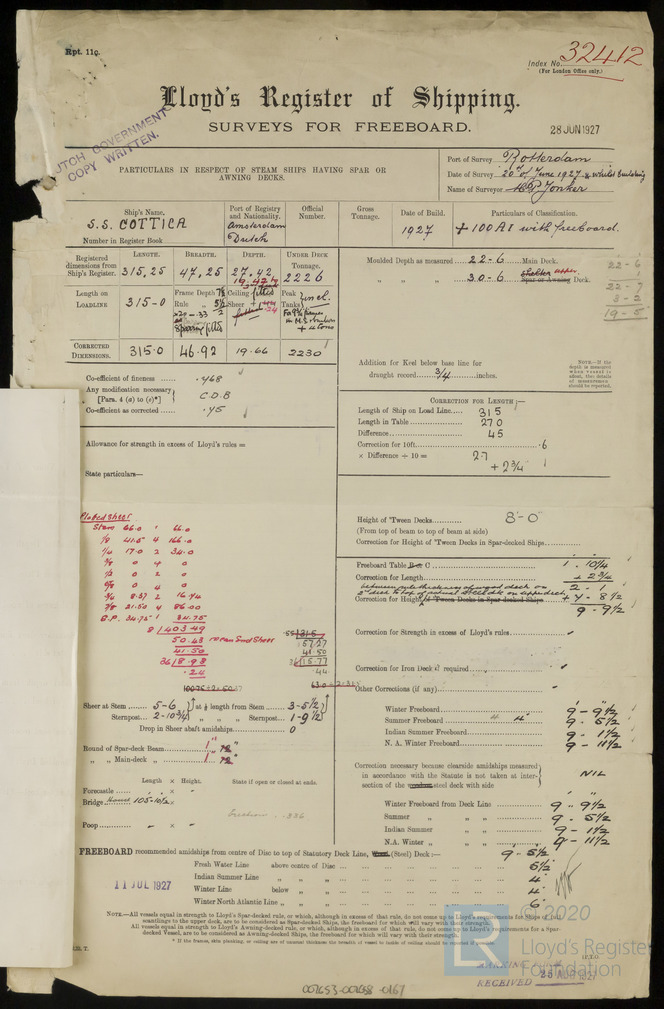 Rpt. 11c.
Index No. 32412
(For London Office only.)
Lloyd's Register of Shipping.
SURVEYS FOR FREEBOARD.
28 JUN 1927
DUTCH GOVERNMENT
COPY WRITTEN.
PARTICULARS IN RESPECT OF STEAM SHIPS HAVING SPAR OR
AWNING DECKS.
Port of Survey Rotterdam
Date of Survey 20th of June 1927 & whilst building
Name of Surveyor Jonker
Ship's Name.
S.S. COTTICA
Number in Register Book
Port of Registry and Nationality.
Amsterdam
Dutch
Official Number.
Gross Tonnage.
Date of Build.
1927
Particulars of Classification.
+ 100 A1 with freeboard.
Registered dimensions from Ship's Register.
LENGTH. 315,25
BREADTH. 47,25
DEPTH. 27.42
UNDER DECK TONNAGE. 2226
Length on LOADLINE 315-0
Frame Depth
Rule
Sparring fitted
Ceiling fitted
Sheer
Peak Tanks incl.
CORRECTED DIMENSIONS. 315.0 46.92 19.66 2230
Co-efficient of fineness ...... .468
Any modification necessary [Para. 4 (a) to (e)*] C.D.B
Co-efficient as corrected ...... .45
Allowance for strength in excess of Lloyd's rules =
State particulars—
Moulded Depth as measured 22-6 Main Deck.
" " " 30-6 upper Deck.
22-6
1
22-7
3-2
19-5
Addition for Keel below base line for
draught record 3/4 inches.
NOTE.—If the depth is measured when vessel is afloat, the details of measurement should be reported.
CORRECTION FOR LENGTH:—
Length of Ship on Load Line 315
Length in Table 270
Difference 45
Correction for 10ft. .6
× Difference ÷ 10 = 2.7
+ 2 3/4
Height of 'Tween Decks 8'-0"
(From top of beam to top of beam at side)
Correction for Height of 'Tween Decks in Spar-decked Ships
Freeboard Table C 1 . 10 1/4
Correction for Length + 2 3/4
2 - 1
Correction for Height of 'Tween Decks in Spar-decked Ships + 7 - 8 1/2
9 - 9 1/2
Correction for Strength in excess of Lloyd's rules
Correction for Iron Deck if required
Other Corrections (if any)
Plotted Sheer
Stem 66.0 1 66.0
1/8 41.5 4 166.0
1/4 17.0 2 34.0
3/8 0 4 0
1/2 0 2 0
5/8 0 4 0
3/4 8.37 2 16.74
7/8 21.50 4 86.00
S.P. 34.75 1 34.75
8 | 403.49
50.43 mean Sheer
41.50
36 | 8.93
.24
Sheer at Stem 5-6 at 1/8 length from Stem 3-5 1/2
Sternpost 2-10 3/4 " " " Sternpost 1-9 1/2
Drop in Sheer abaft amidships 0
Round of Spar-deck Beam
" " Main-deck "
Length × Height. State if open or closed at ends.
Forecastle
Bridge House 105-10 1/2 ×
Poop
Winter Freeboard 9 - 9 1/2
Summer Freeboard 9 - 5 1/2
Indian Summer Freeboard 9 - 1 1/2
N. A. Winter Freeboard 9 - 11 1/2
Correction necessary because clearside amidships measured
in accordance with the Statute is not taken at inter-
section of the steel deck with side
NIL
Winter Freeboard from Deck Line 9 - 9 1/2
Summer " " " 9 - 5 1/2
Indian Summer " " 9 - 1 1/2
N.A. Winter " " 9 - 11 1/2
FREEBOARD recommended amidships from centre of Disc to top of Statutory Deck Line, (Steel) Deck :— 9 - 5 1/2
Fresh Water Line above centre of Disc 5 1/2
Indian Summer Line " " 4
Winter Line below " 4
Winter North Atlantic Line " " 6
11 JUL 1927
NOTE.—All vessels equal in strength to Lloyd's Spar-decked rule, or which, although in excess of that rule, do not come up to Lloyd's requirements for Ships of full
scantlings to the upper deck, are to be considered as Spar-decked Ships, the freeboard for which will vary with their strength.
All vessels equal in strength to Lloyd's Awning-decked rule, or which, although in excess of that rule, do not come up to Lloyd's requirements for a Spar-
decked Vessel, are to be considered as Awning-decked Ships, the freeboard for which will vary with their strength.
* If the frames, skin planking, or ceiling are of unusual thickness the breadth of vessel to inside of ceiling should be reported
[P.T.O.
© 2020
LR
Lloyd's Register
Foundation
25 AUG 1927
RECEIVED
002653-002658-0161